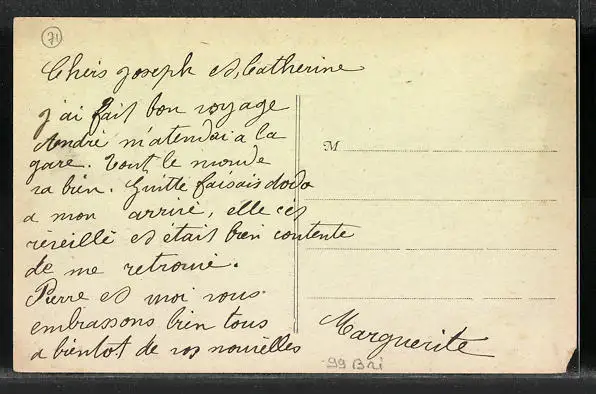 71
Chers Joseph et Catherine
j'ai fait bon voyage
André m'atendai a la
gare. Tout le monde
va bien. Guitte faisais dodo
a mon arrivé, elle c'est
réveillé et était bien contente
de me retrouvé.
Pierre et moi vous
embrassons bien tous
a bientot de vos nouvelles
M
Marguerite
99 Bri